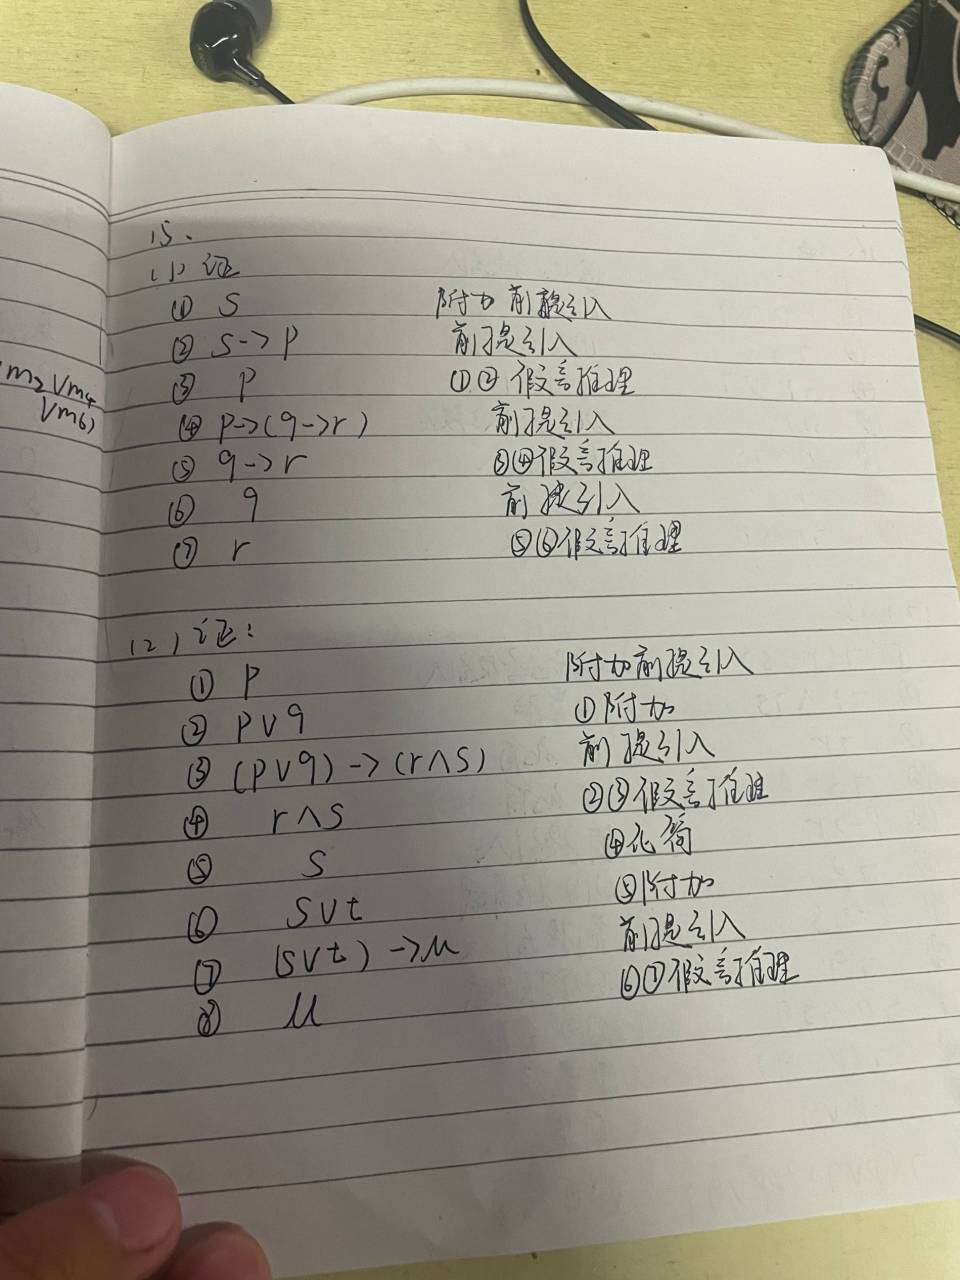 m₂∨m₄
∨m₆)
15、
(1) 证
① s 附加前提引入
② s->p 前提引入
③ p ①②假言推理
④ p->(q->r) 前提引入
⑤ q->r ③④假言推理
⑥ q 前提引入
⑦ r ⑤⑥假言推理
(2) 证:
① p 附加前提引入
② p∨q ①附加
③ (p∨q)->(r∧s) 前提引入
④ r∧s ②③假言推理
⑤ s ④化简
⑥ s∨t ⑤附加
⑦ (s∨t)->u 前提引入
⑧ u ⑥⑦假言推理